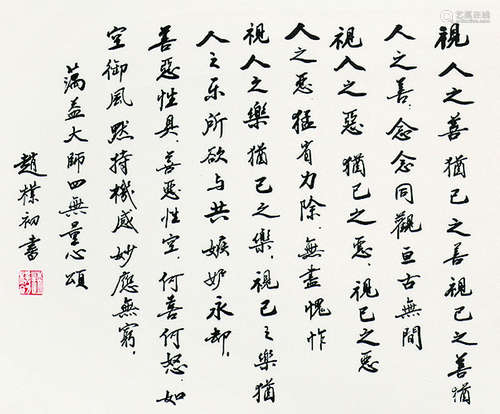 視人之善猶己之善視己之善猶
人之善，念念同觀亘古無間
視人之惡猶己之惡，視己之惡
人之惡，猛省力除，無盡愧怍
視人之樂猶己之樂，視己之樂猶
人之乐所欲与共嫉妒永却，
善惡性具，善惡性空，何喜何怒，如
空御風默持機感妙應無窮，
蕅益大師四無量心頌
趙樸初書